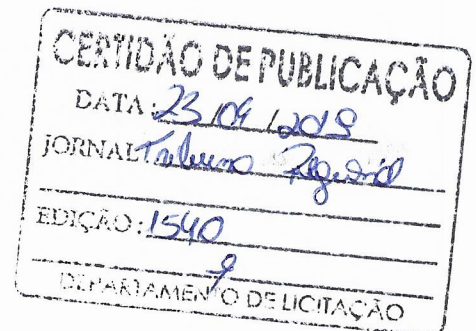 CERTIDÃO DE PUBLICAÇÃO
DATA: 23/09/2019
JORNAL Tribuna Regional
EDIÇÃO: 1540
DEPARTAMENTO DE LICITAÇÃO